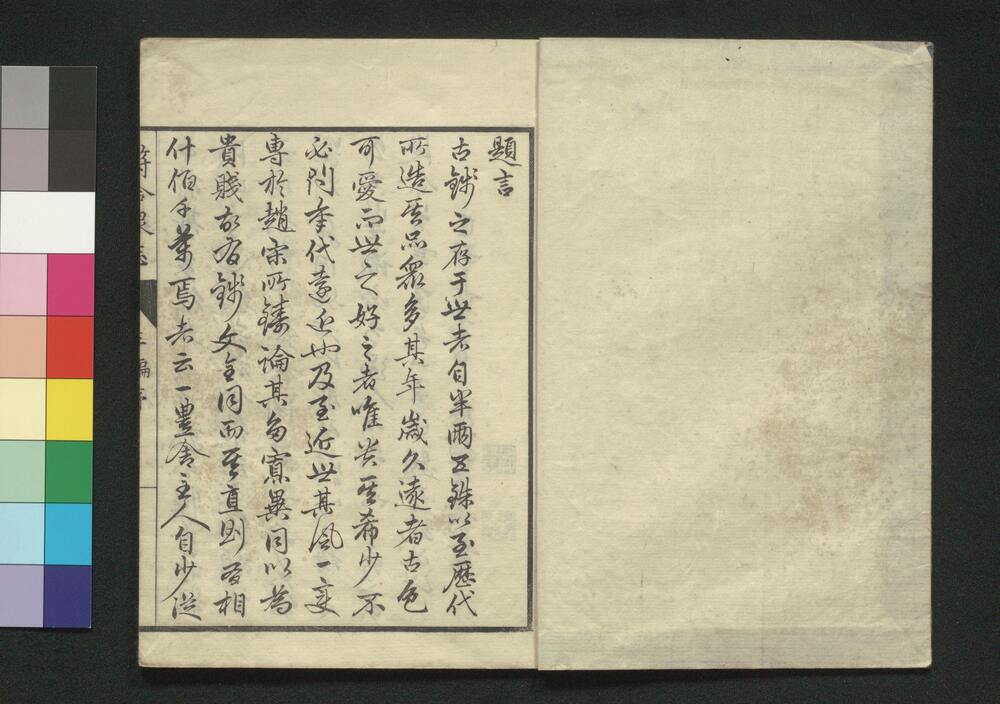 題言
古錢之存于世者自半兩五銖以至歷代
所造其品眾多其年歲久遠者古色
可愛而世之好之者唯貴其希少不
必問年代遠近也及至近世其風一變
專於趙宋所鑄論其多寡異同以為
貴賤故有錢文全同而其直則有相
什伯千萬焉者云一豊舍主人自少從